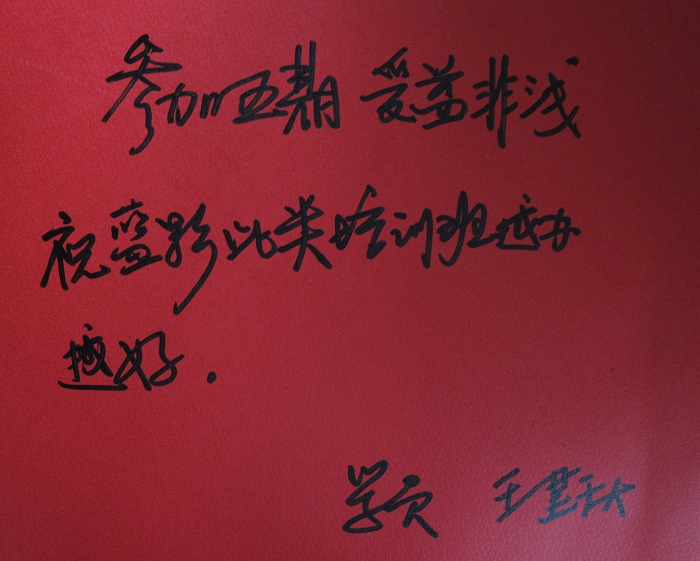 参加五期 受益非浅
祝蓝影此类培训班越办
越好.
学员 王